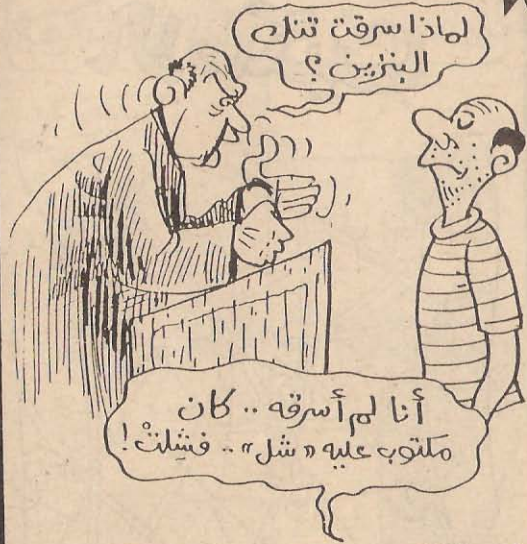 لماذا سرقت تنك
البنزين ؟
أنا لم أسرقه .. كان
مكتوب عليه « شل » .. فشِلتْ !